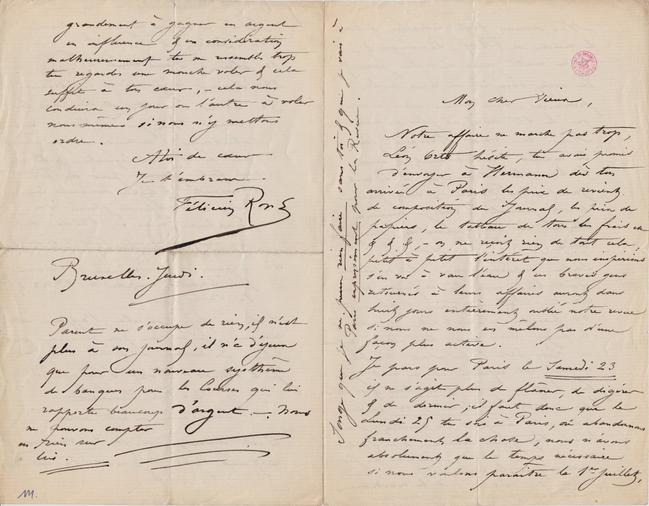 Mon cher Vieux,
Notre affaire ne marche pas trop,
Léon hésite, tu avais promis
d'envoyer à Hermann dès ton
arrivée à Paris les prix de revient
de composition du Journal, les prix de
papiers, le tableau de tous les frais etc
& & &, – on ne reçoit rien de tout cela,
petit à petit l'intérêt que nous inspirions
s'en va à vau l'eau & ces braves gens
retournés à leurs affaires auront dans
huit jours entièrement oublié notre revue
si nous ne nous en mêlons pas d'une
façon plus active.
Je pars pour Paris le Samedi 23
il ne s'agit plus de flâner, de digérer
& de dormir, il faut donc que le
lundi 25 tu sois à Paris, ou abandonnons
franchement la chose, nous n'avons
absolument que le temps nécessaire
si nous voulons paraître le 1er Juillet,
Songe que je ne puis rien faire sans toi & que je vais à
Paris expressément pour la Revue.
grandement à gagner en argent
en influence & en considération
malheureusement tu me ressembles trop
tu regardes une mouche voler & cela
suffit à ton cœur, – cela nous
conduira un jour ou l'autre à voler
nous-mêmes si nous n'y mettons
ordre.
A toi de cœur
Je t'embrasse
Félicien Rops
Bruxelles. Jeudi.
Parent ne s'occupe de rien, il n'est
plus à son journal, il n'a d'yeux
que pour un nouveau système
de banques pour les Courses qui lui
rapporte beaucoup d'argent –. Nous
ne pouvons compter
en rien sur
lui.